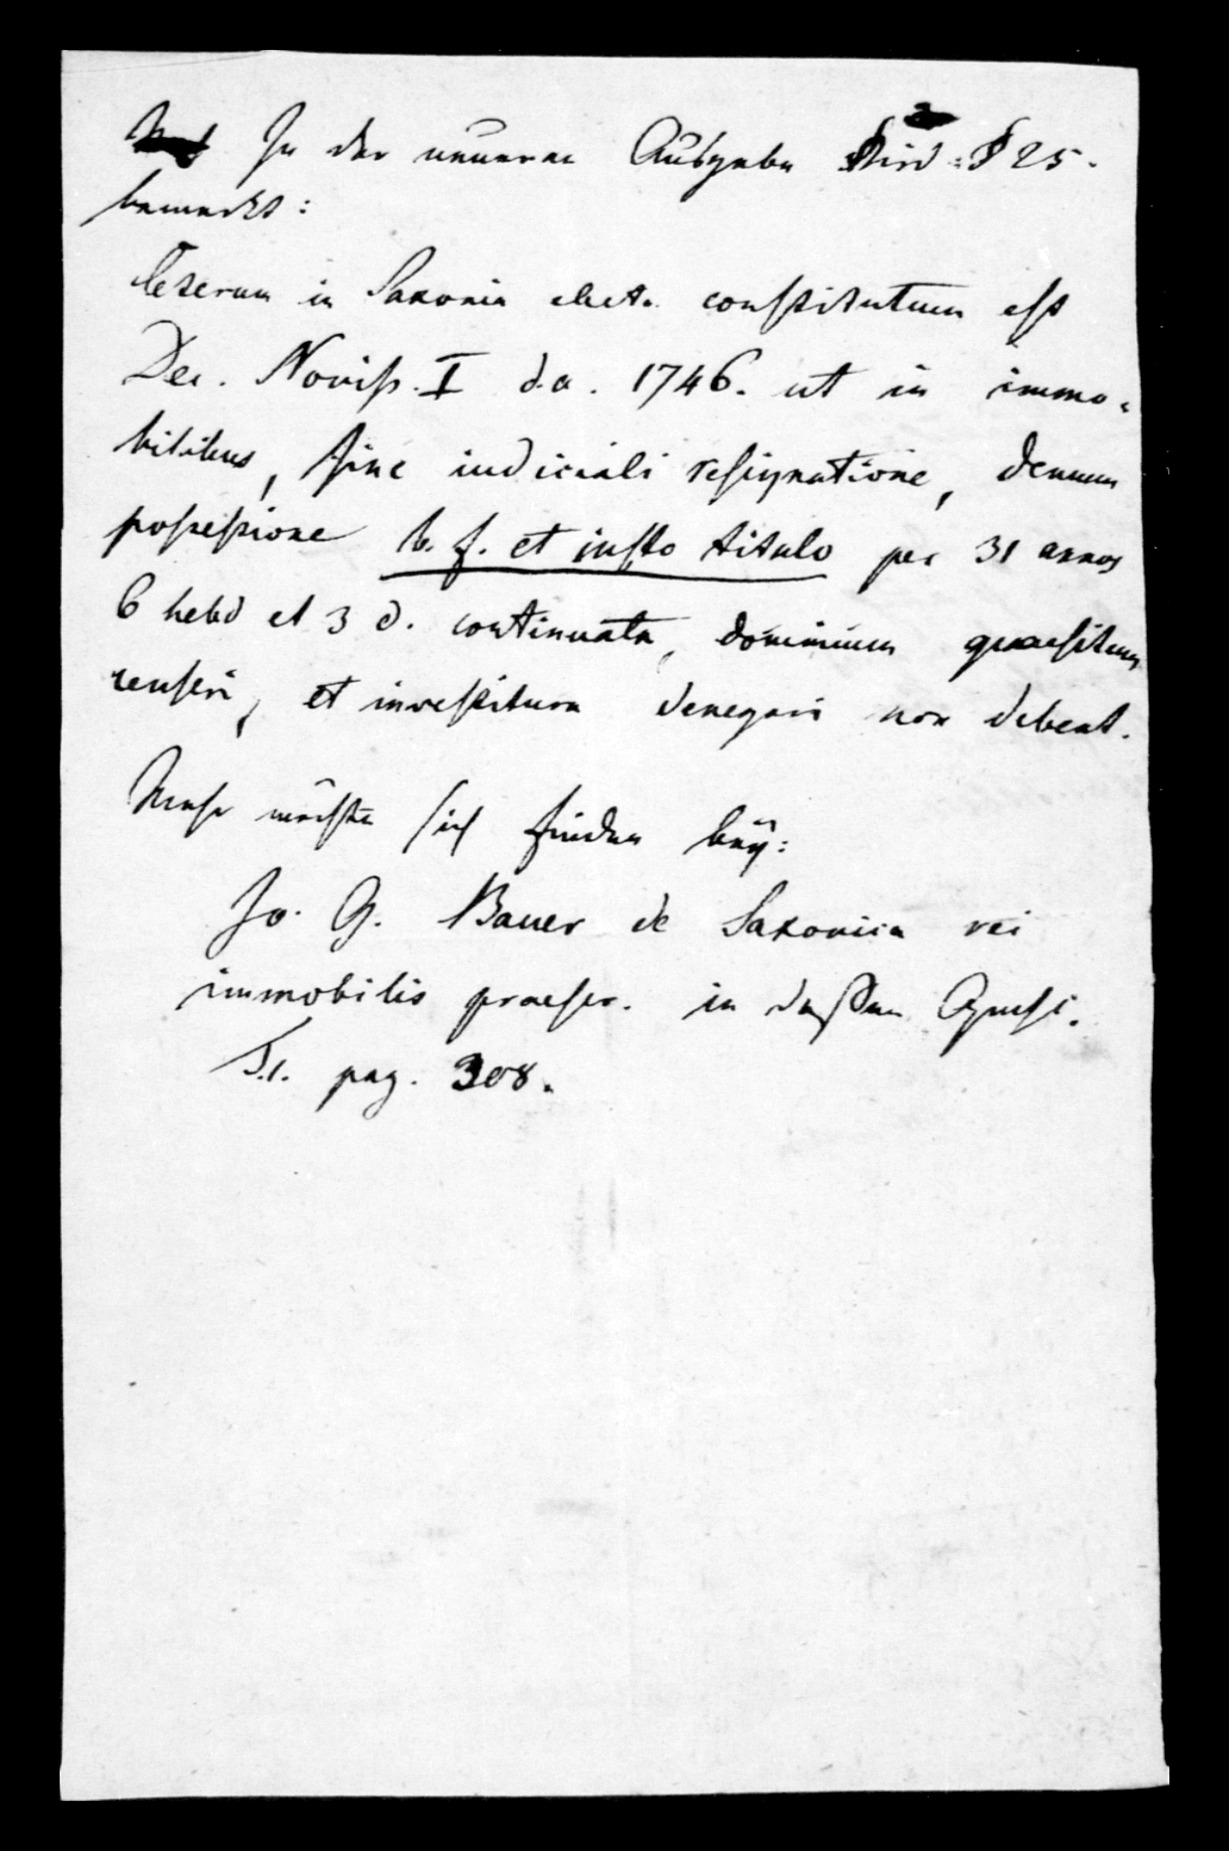 In der neueren Ausgabe wird § 25.
bemerkt:
Ceterum in Saxonia elect. constitutum est
Dec. Noviss. I d. a. 1746. ut in immo-
bilibus, sine iudiciali resignatione, demum
possessione b. f. et iusto titulo per 31 annos
6 hebd et 3 d. continuata, dominium quaesitum
censeri, et investitura denegari non debeat.
Mehr möchte sich finden bey:
Jo. G. Bauer de Saxonica rei
immobilis praescr. in dessen Opusc.
T. 1. pag. 308.